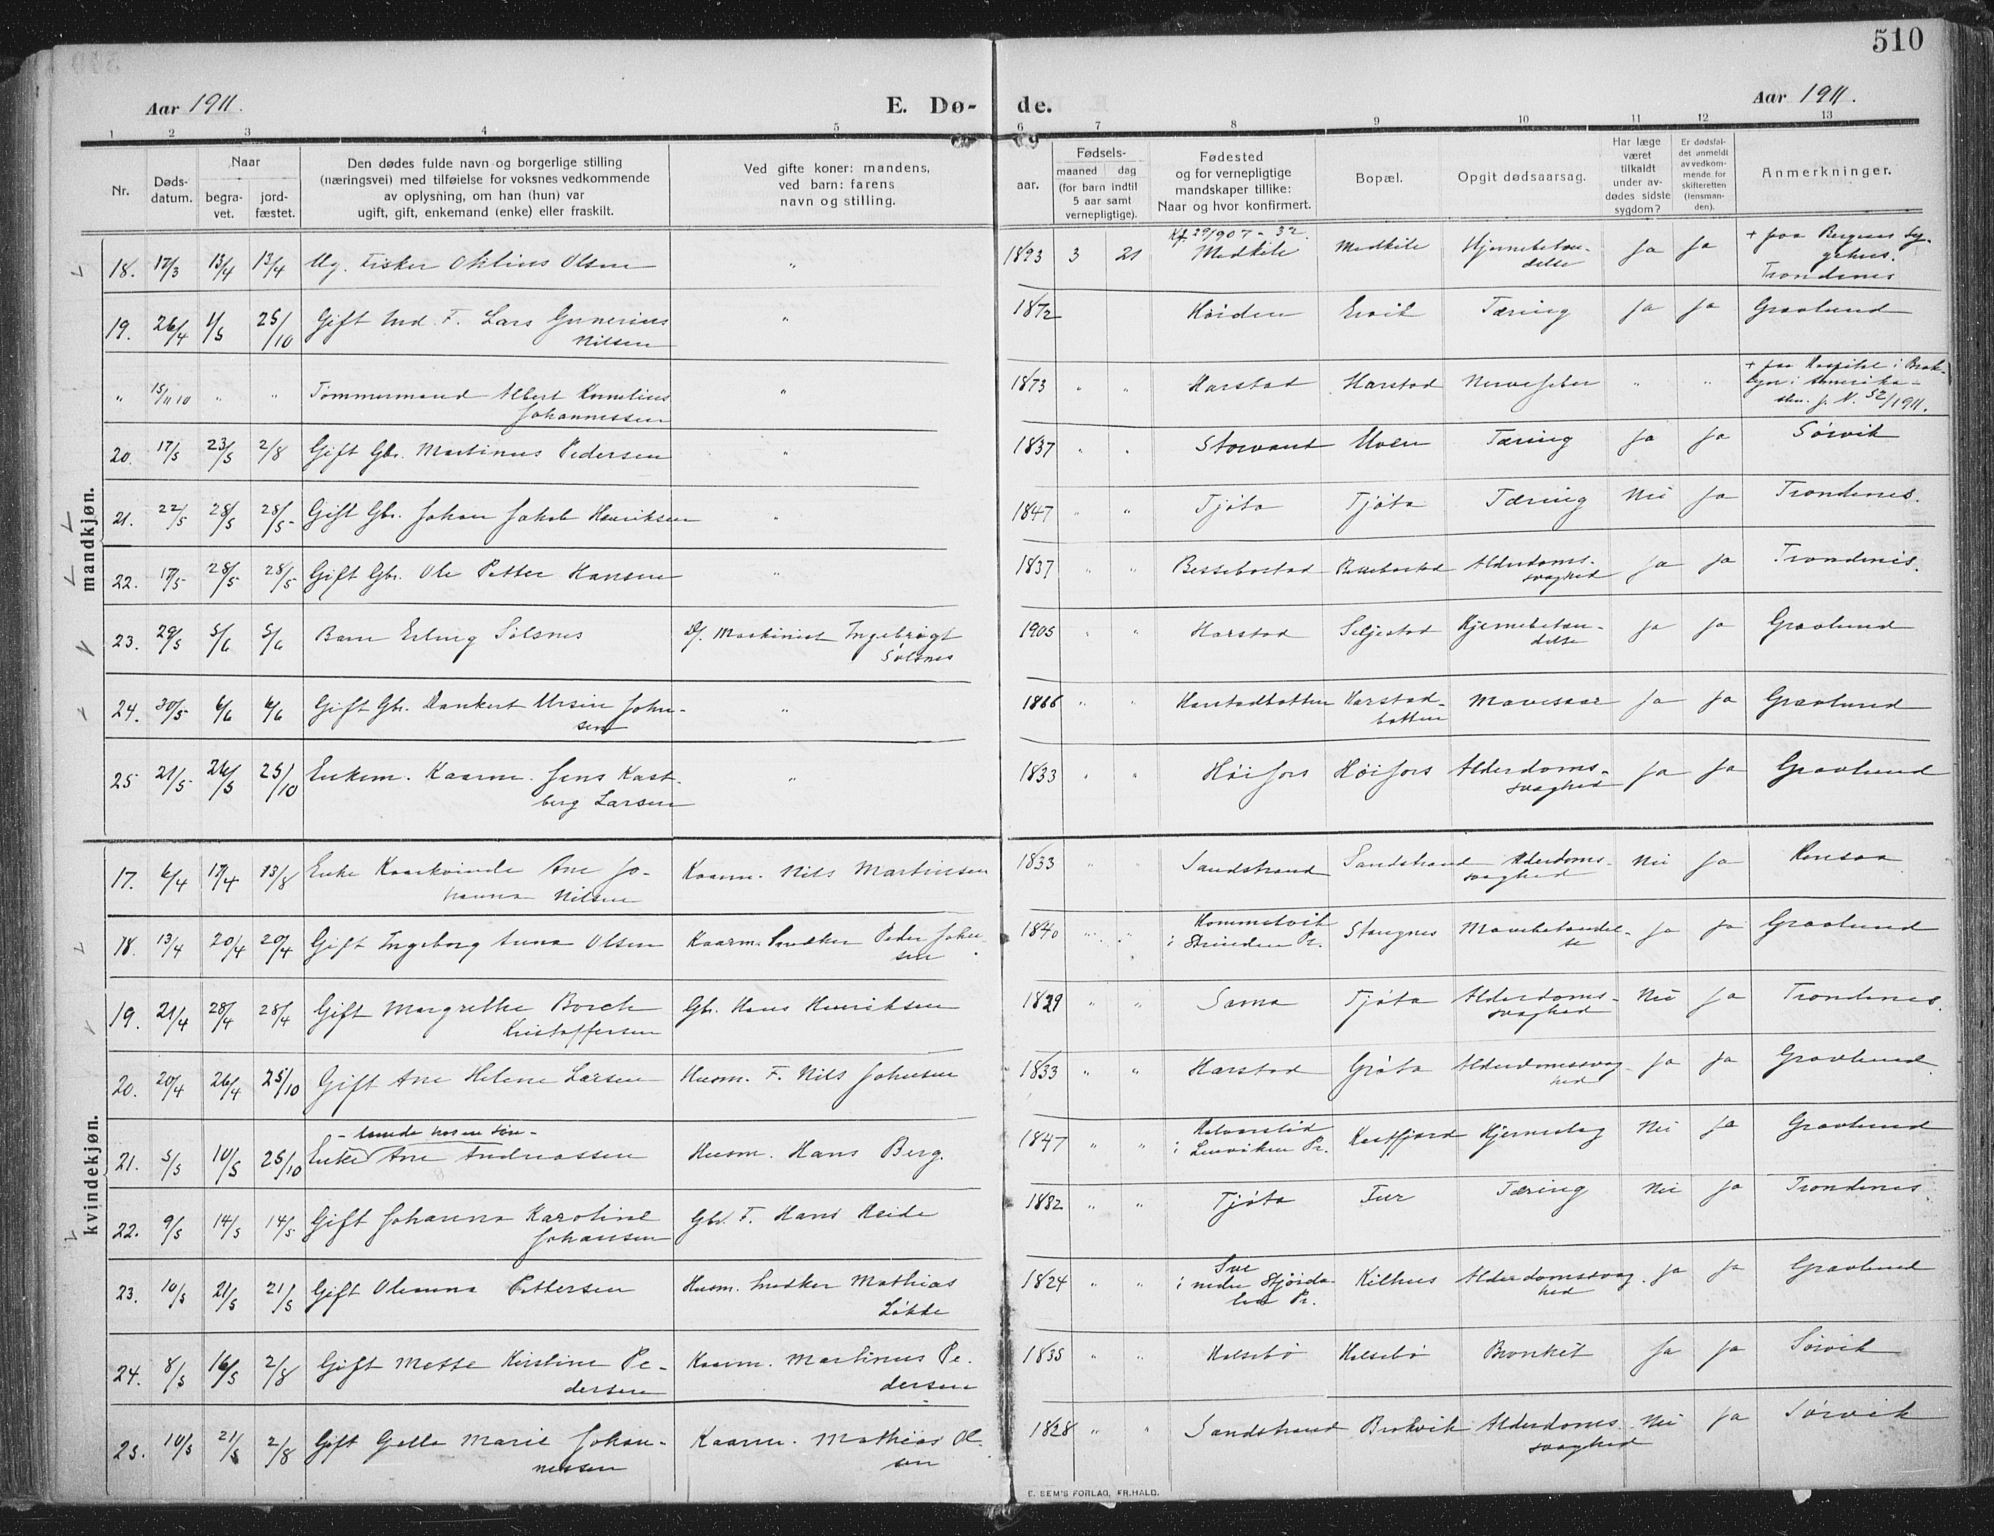 510
Aar 1911.
E. Dø-
de.
Aar 1911.
1 2 3 4 5 6 7 8 9 10 11 12 13
Nr.
Døds-
datum.
Naar
begra-
vet.
jord-
fæstet.
Den dødes fulde navn og borgerlige stilling
(næringsvei) med tilføielse for voksnes vedkommende
av oplysning, om han (hun) var
ugift, gift, enkemand (enke) eller fraskilt.
Ved gifte koner: mandens,
ved barn: farens
navn og stilling.
aar.
Fødsels-
maaned dag
(for barn indtil
5 aar samt
vernepligtige).
Fødested
og for vernepligtige
mandskaper tillike:
Naar og hvor konfirmert.
Bopæl.
Opgit dødsaarsag.
Har læge
været
tilkaldt
under av-
dødes sidste
sygdom?
Er dødsfal-
det anmeldt
av vedkom-
mende for
skifteretten
(lensman-
den).
Anmerkninger.
mandkjøn.
Kf. 29/907 - 32.
18. 17/3 13/4 13/4 Ug. Fisker Oklius Olsen " 1893 3 21 Medkile Medkile Hjernebetæn-
delse Ja Ja + paa Bergens Sy-
gehus.
Trondenes
19. 26/4 1/5 25/10 Gift Ind. F. Lars Gunerius
Nilsen " 1872 Høiden Ervik Tæring Ja Ja Gravlund
" 15/11 10 " " Tømmermand Albert Kornelius
Johannessen " 1873 " " Harstad Harstad Nervefeber " " + paa Hospital i Brok-
lyn i Amerika -
skr. j. N. 52/1911.
20. 17/5 23/5 2/8 Gift Gbr. Martinus Pedersen " 1837 " " Storvand Ulven Tæring Ja Ja Sørvik
21. 22/5 28/5 28/5 Gift Gbr. Johan Jakob Henriksen " 1847 " " Tjøta Tjøta Tæring Nei Ja Trondenes.
22. 17/5 28/5 28/5 Gift Gbr. Ole Petter Hansen " 1837 " " Bessebostad Bessebostad Alderdoms-
svaghed Ja Ja Trondenes.
23. 29/5 5/6 5/6 Barn Erling Sølsnes Df. Maskinist Ingebrigt
Sølsnes 1905 " " Harstad Seljestad Hjernebetæn-
delse Ja Ja Gravlund
24. 30/5 6/6 6/6 Gift Gbr. Dankert Ursin John-
sen " 1866 " " Harstadbotten Harstad-
botten Mavesaar Ja Ja Gravlund
25 21/5 26/5 25/10 Enkem. Kaarm. Jens Kast-
berg Larsen " 1833 " " Høifors Høifors Alderdoms-
svaghed Ja Ja Gravlund
kvindekjøn.
17. 6/4 17/4 13/8 Enke Kaarkvinde Ane Jo-
hanna Nilsen Kaarm. Nils Martinsen 1833 " " Sandstrand Sandstrand Alderdoms-
svaghed Nei Ja
18. 13/4 20/4 20/4 Gift Ingeborg Anna Olsen Kaarm. Snedker Peder John-
sen 1840 " "
i Strinden Pr. Stangnes Mavebetændel-
se Ja Ja Gravlund
19. 21/4 28/4 28/4 Gift Margrethe Borch
Kristoffersen Gbr. Hans Henriksen 1829 " " Sama Tjøta Alderdoms-
svaghed Nei Ja Trondenes.
20. 20/4 26/4 25/10 Gift Ane Helene Larsen Husm. F. Nils Johnsen 1833 " " Harstad Grøta Alderdomssvag-
hed Ja Ja Gravlund
21. 5/5 10/5 25/10 - levede hos en søn -
Enke Ane Andreassen Husm. Hans Berg. 1847 " "
i Lenviken Pr. Kastfjord Hjerneslag Nei Ja Gravlund
22. 9/5 14/5 14/5 Gift Johanna Karoline
Johansen Gbr. F. Hans Heide 1882 " " Tjøta Fur Tæring Nei Ja Trondenes.
23. 10/5 21/5 21/5 Gift Oleanna Pettersen Husm. Snedker Mathias
Løkke 1824 " "
i nedre Stjørda-
len Pr. Kilhus Alderdomssvag-
hed Ja Ja Gravlund
24. 8/5 16/5 2/8 Gift Mette Kirstine Pe-
dersen Kaarm. Martinus Pe-
dersen 1835 " " Halsebø Halsebø Bronkit Ja Ja Sørvik
25. 10/5 21/5 2/8 Gift Golla Marie Johan-
nessen Kaarm. Mathias Ol-
sen 1828 " " Sandstrand Brokvik Alderdoms-
svaghed Nei Ja Sørvik
E. SEM'S FORLAG, FR.HALD.